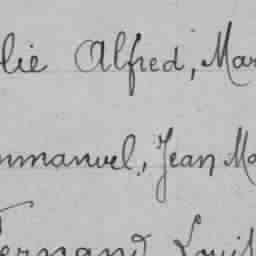 lie Alfred, Mar
nmanuel, Jean Ma
Fernand Louis